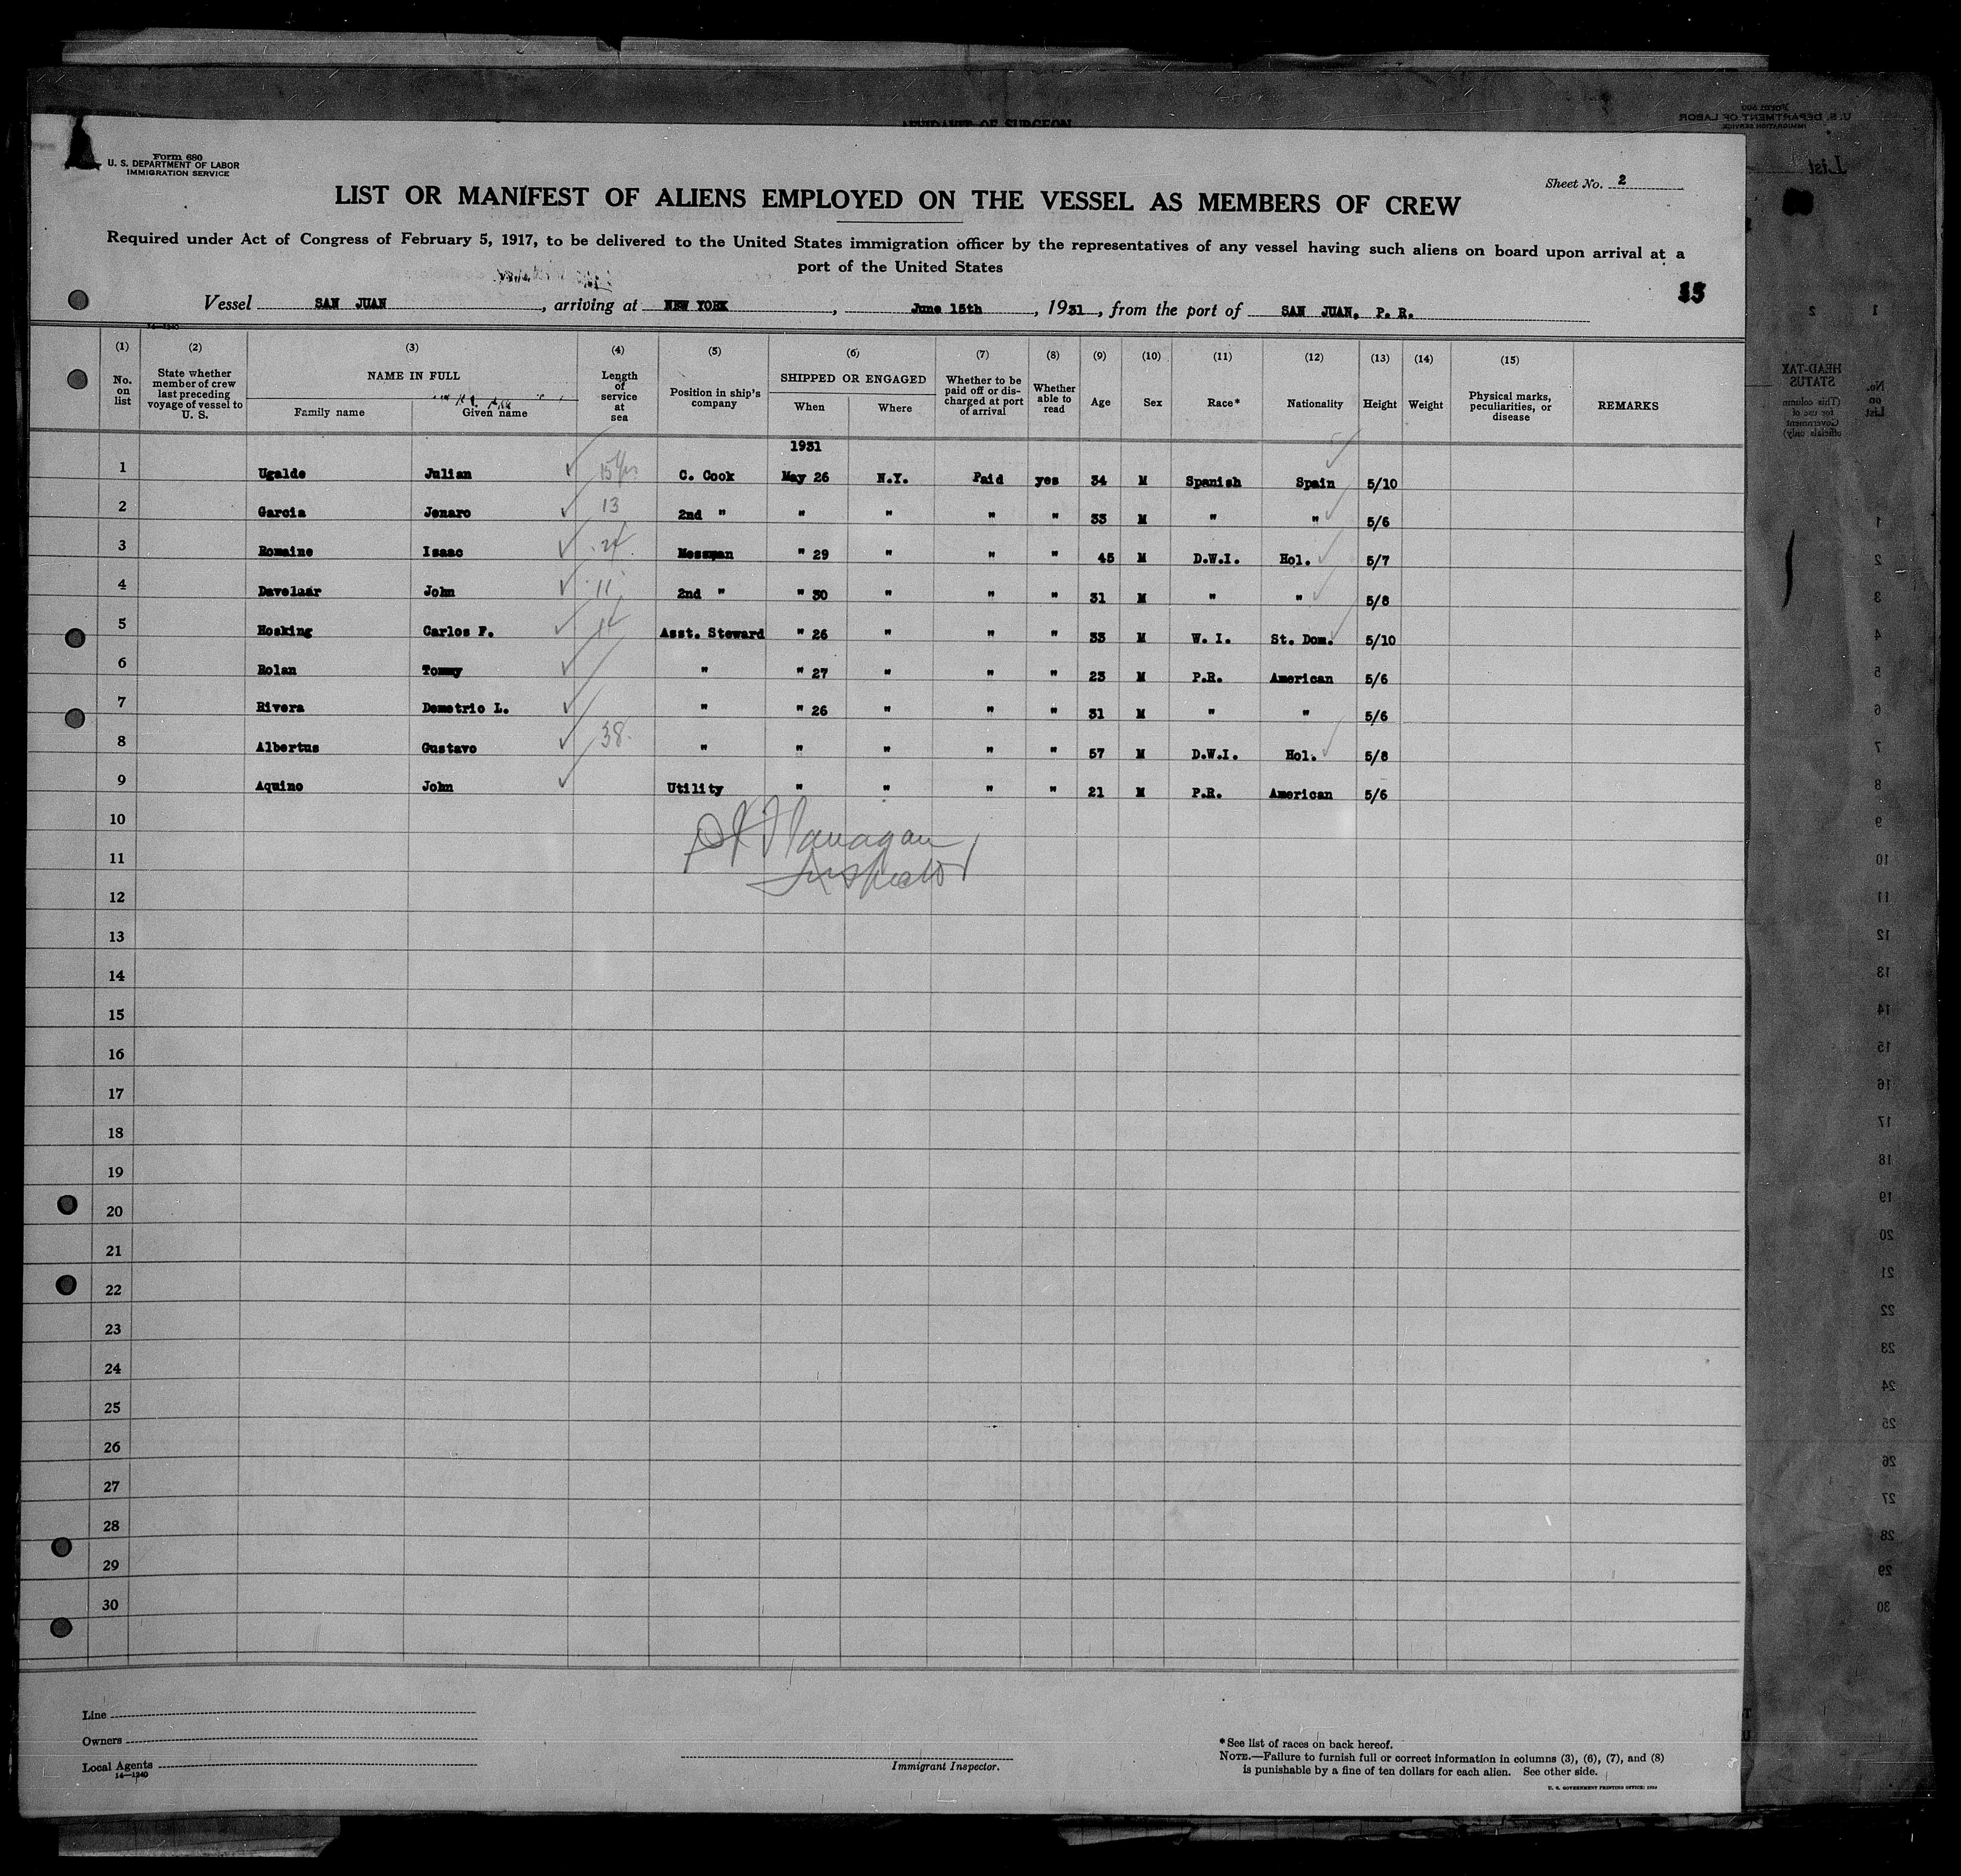 AFFIDAVIT OF SURGEON
Form 680
U. S. DEPARTMENT OF LABOR
IMMIGRATION SERVICE
Sheet No. 2
LIST OR MANIFEST OF ALIENS EMPLOYED ON THE VESSEL AS MEMBERS OF CREW
Required under Act of Congress of February 5, 1917, to be delivered to the United States immigration officer by the representatives of any vessel having such aliens on board upon arrival at a
port of the United States
Vessel SAN JUAN, arriving at NEW YORK, June 15th, 1931, from the port of SAN JUAN, P. R.
14—1240
(1) (2) (3) (4) (5) (6) (7) (8) (9) (10) (11) (12) (13) (14) (15)
No. on list
State whether member of crew last preceding voyage of vessel to U. S.
NAME IN FULL
Family name Given name
Length of service at sea
Position in ship's company
SHIPPED OR ENGAGED
When Where
Whether to be paid off or discharged at port of arrival
Whether able to read
Age Sex Race* Nationality Height Weight
Physical marks, peculiarities, or disease
REMARKS
1931
1 Ugalde Julian 15 yrs C. Cook May 26 N.Y. Paid yes 34 M Spanish Spain 5/10
2 Garcia Jenaro 13 2nd " " " " " 33 M " " 5/6
3 Romaine Isaac 24 Messman " 29 " " " 45 M D.W.I. Hol. 5/7
4 Davelaar John 11 2nd " " 30 " " " 31 M " " 5/8
5 Hosking Carlos F. Asst. Steward " 26 " " " 33 M W. I. St. Dom. 5/10
6 Rolan Tommy " " 27 " " " 23 M P.R. American 5/6
7 Rivera Demetrio L. " " 26 " " " 31 M " " 5/6
8 Albertus Gustavo 38 " " " " " 57 M D.W.I. Hol. 5/8
9 Aquino John Utility " " " " 21 M P.R. American 5/6
10 Flanagan
11 Inspector
12
13
14
15
16
17
18
19
20
21
22
23
24
25
26
27
28
29
30
Line
Owners
Local Agents
14—1240
Immigrant Inspector.
*See list of races on back hereof.
NOTE.—Failure to furnish full or correct information in columns (3), (6), (7), and (8)
is punishable by a fine of ten dollars for each alien. See other side.